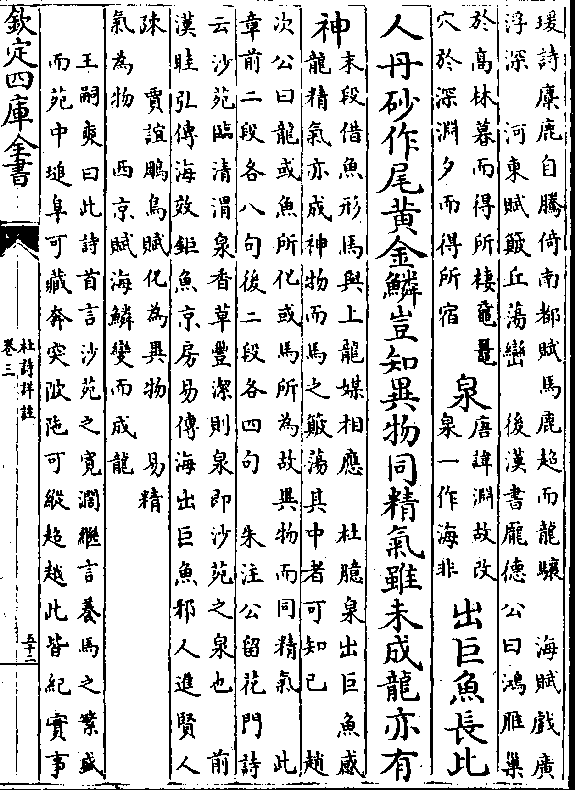 瑗詩麋鹿自騰倚南都賦馬鹿超而龍驤　海賦戲廣
浮深　河東賦簸丘蕩巒　後漢書龐德公曰鴻雁巢
於高林暮而得所棲黿鼉
穴於深淵夕而得所宿
泉
唐諱淵故改
泉一作海非
出巨魚長比
人丹砂作尾黄金鱗豈知異物同精氣雖未成龍亦有
神
末段借魚形馬與上龍媒相應　杜臆泉出巨魚感
龍精氣亦成神物而馬之簸蕩其中者可知已　趙
次公曰龍或魚所化或馬所為故異物而同精氣　此
章前二段各八句後二段各四句　朱注公留花門詩
云沙苑臨清渭泉香草豐潔則泉即沙苑之泉也　前
漢眭弘傳海效鉅魚京房易傳海出巨魚邪人進賢人
疎　賈誼鵩鳥賦化為異物　易精
氣為物　西京賦海鱗變而成龍
王嗣奭曰此詩首言沙苑之寛濶繼言養馬之繁盛
而苑中塠阜可藏奔突陂陁可縱超越此皆紀實事
欽定四庫全書
杜詩詳註
卷三
五十二